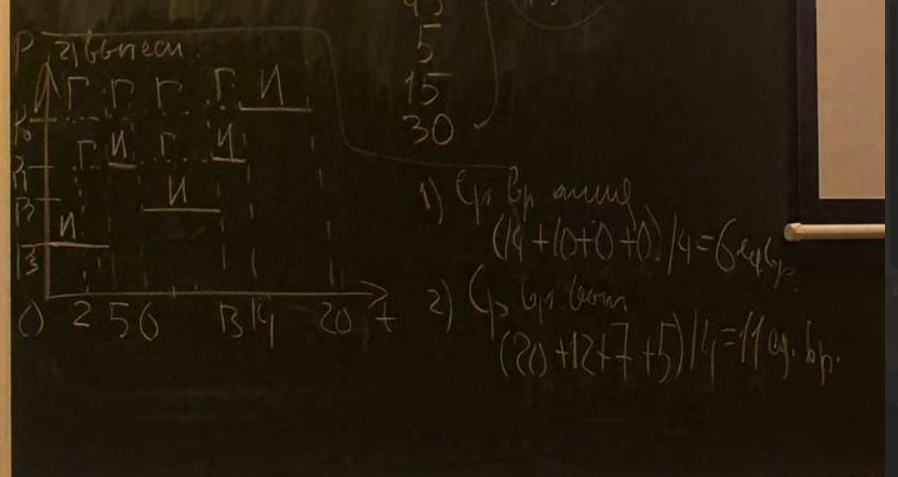 P 2) вытесн.
45
5
15
30
Г Г Г Г И
P0
Г И Г И
P1
И
P2
И
P3
0 2 5 6 13 14 20 t
1) Ср. вр. ожид
(14 +10+0+0)/4=6 ед. вр.
2) Ср. вр. вып
(20+12+7+5)/4=11 ед. вр.